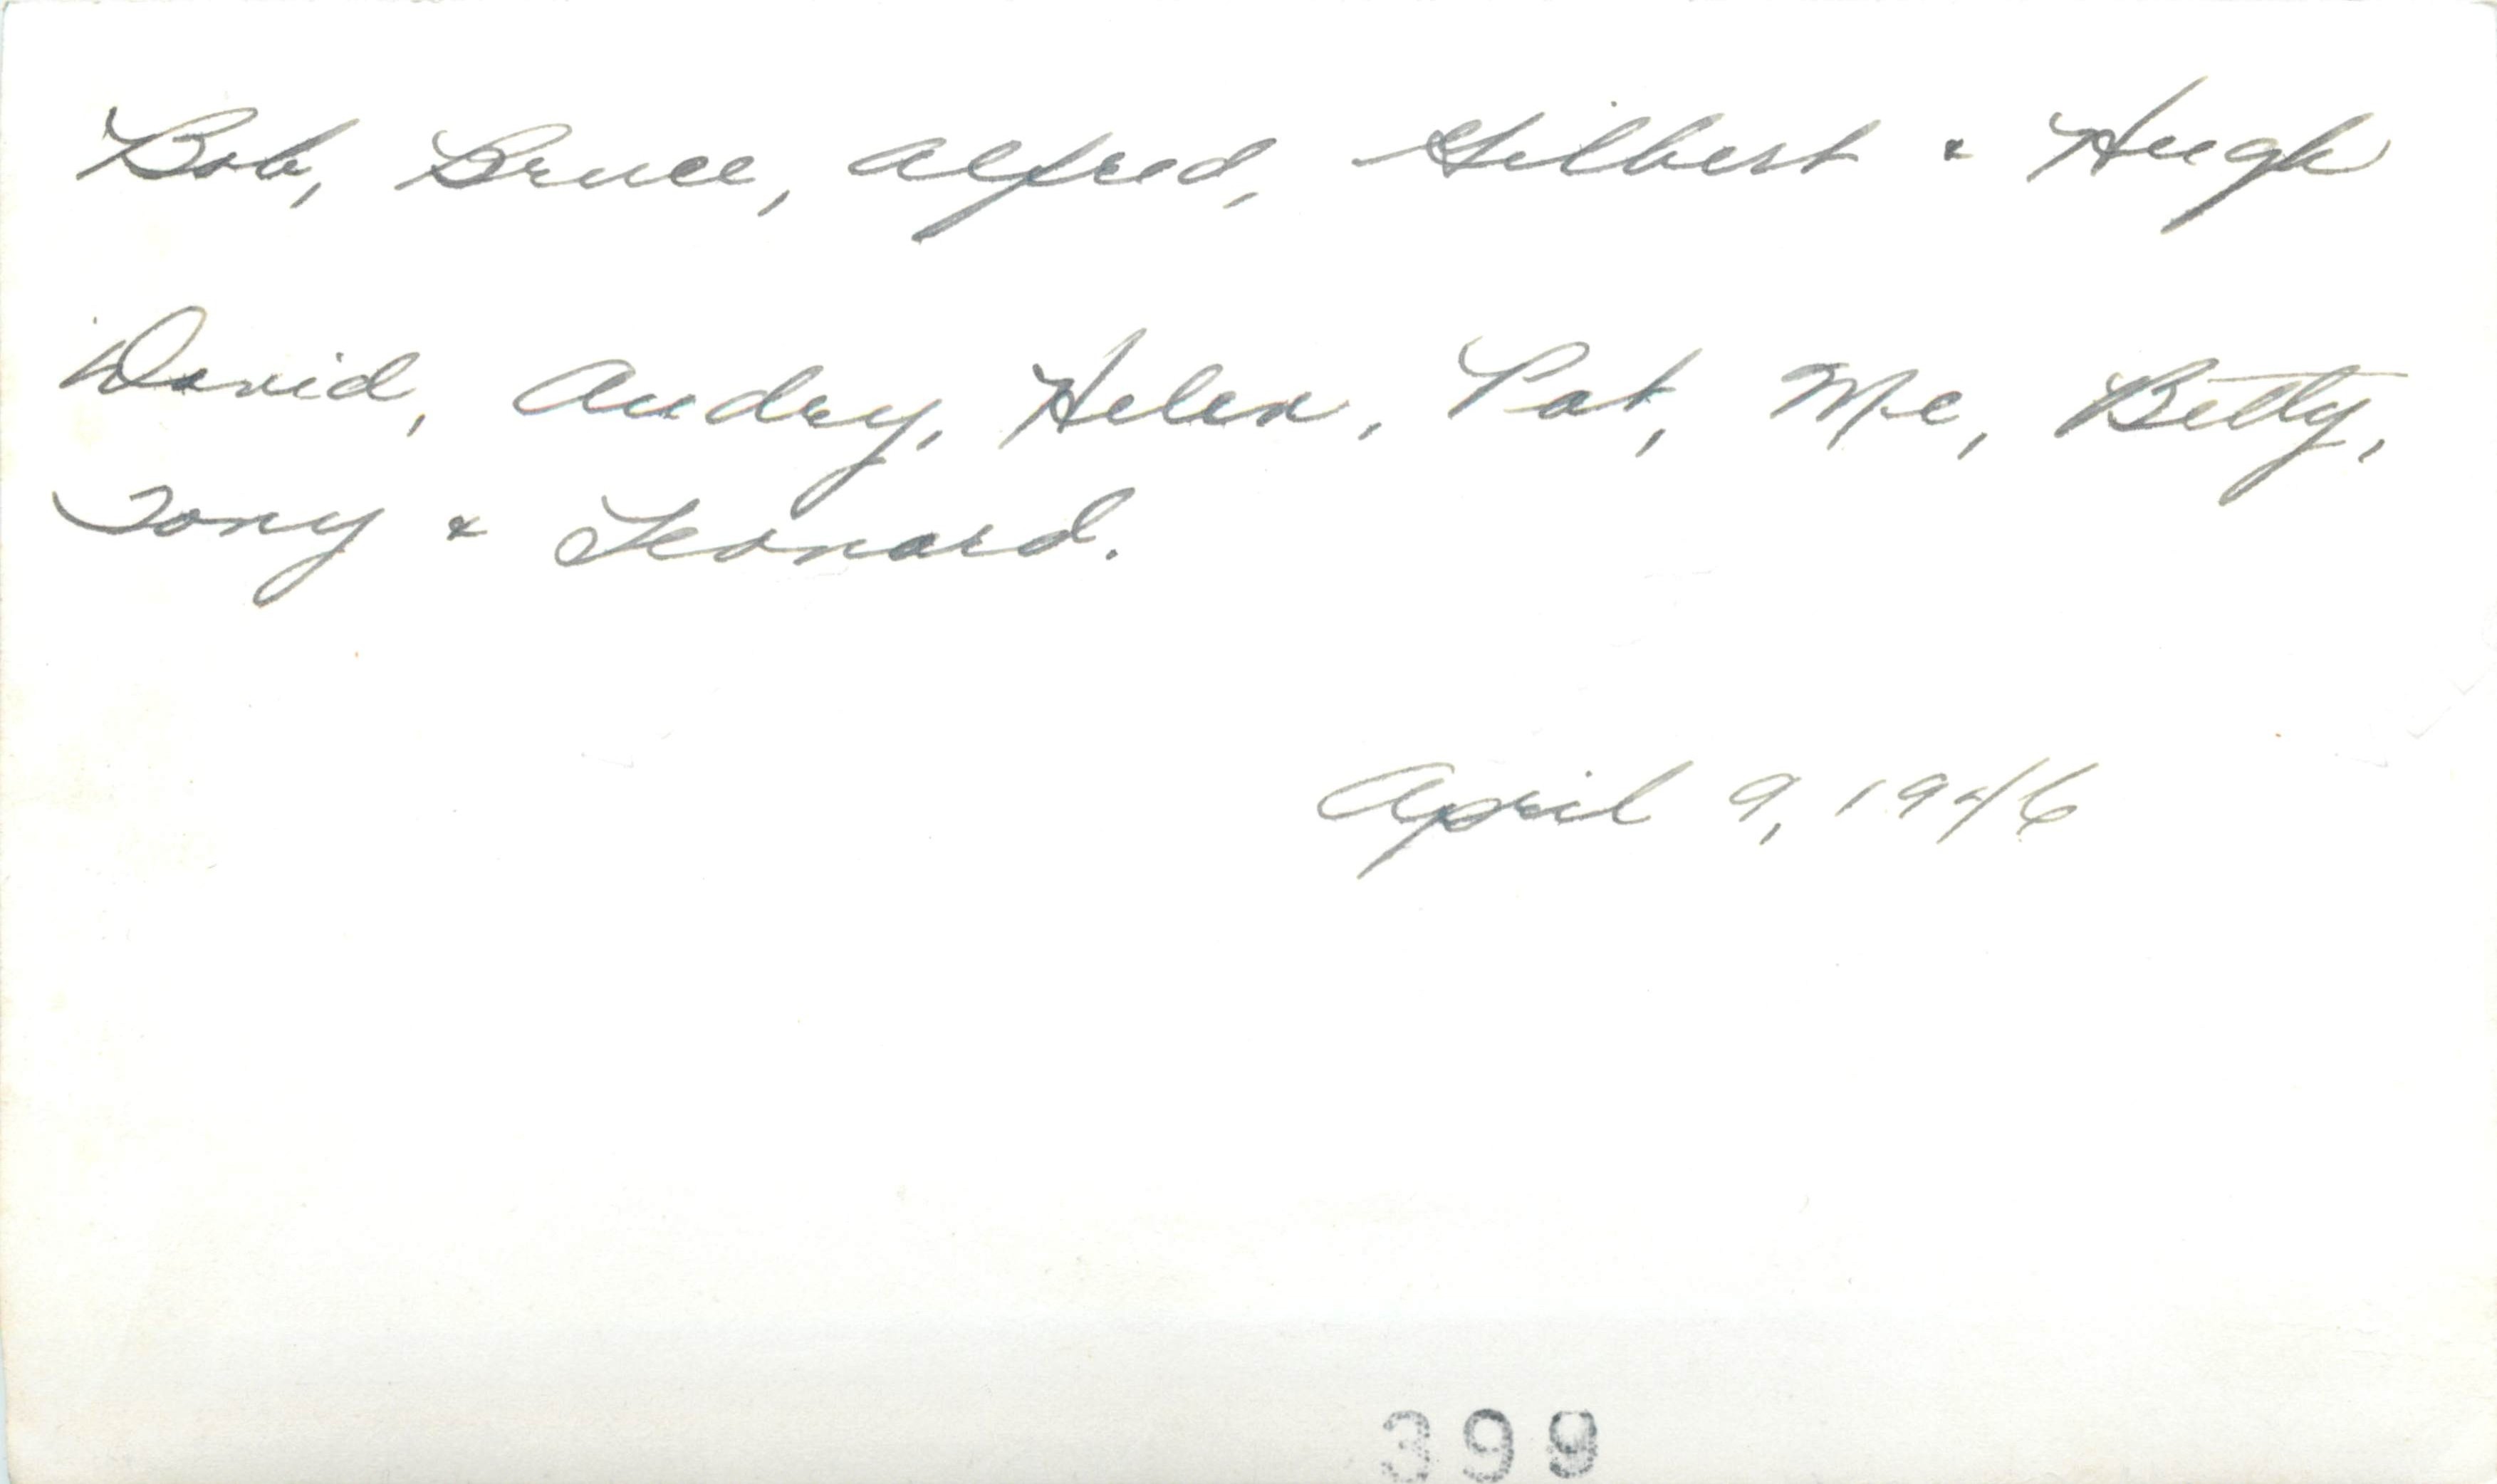 Bob, Bruce, Alfred, Gilbert & Hugh
David, Audrey, Helen, Pat, Me, Betty,
Tony & Leonard.
April 9, 1946
399